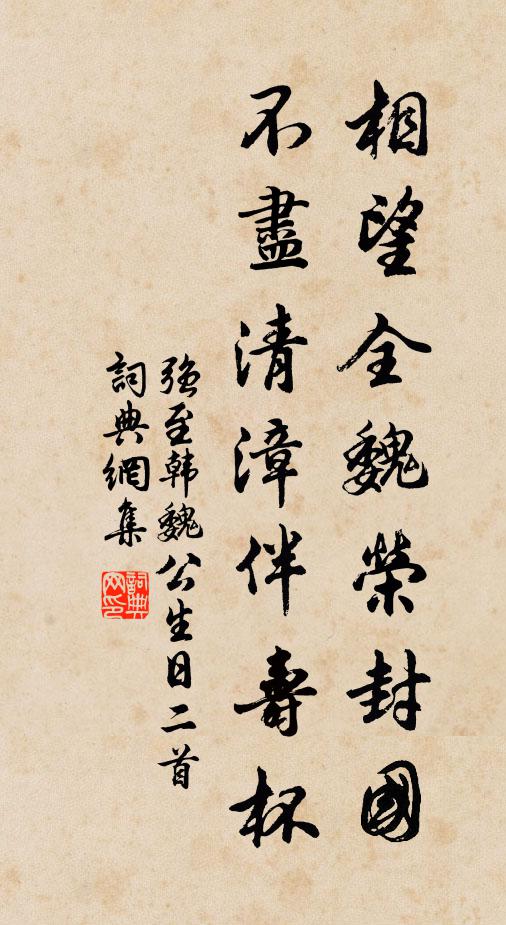 相望全魏榮封國
不盡清漳伴壽杯
強至韓魏公生日二首
詞典網集
詞典网印